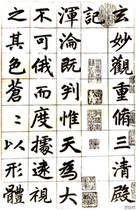 玄妙觀重脩三清殿
記
渾淪既判惟天為大
不可俄而度據遠視
之其色蒼〻以形體